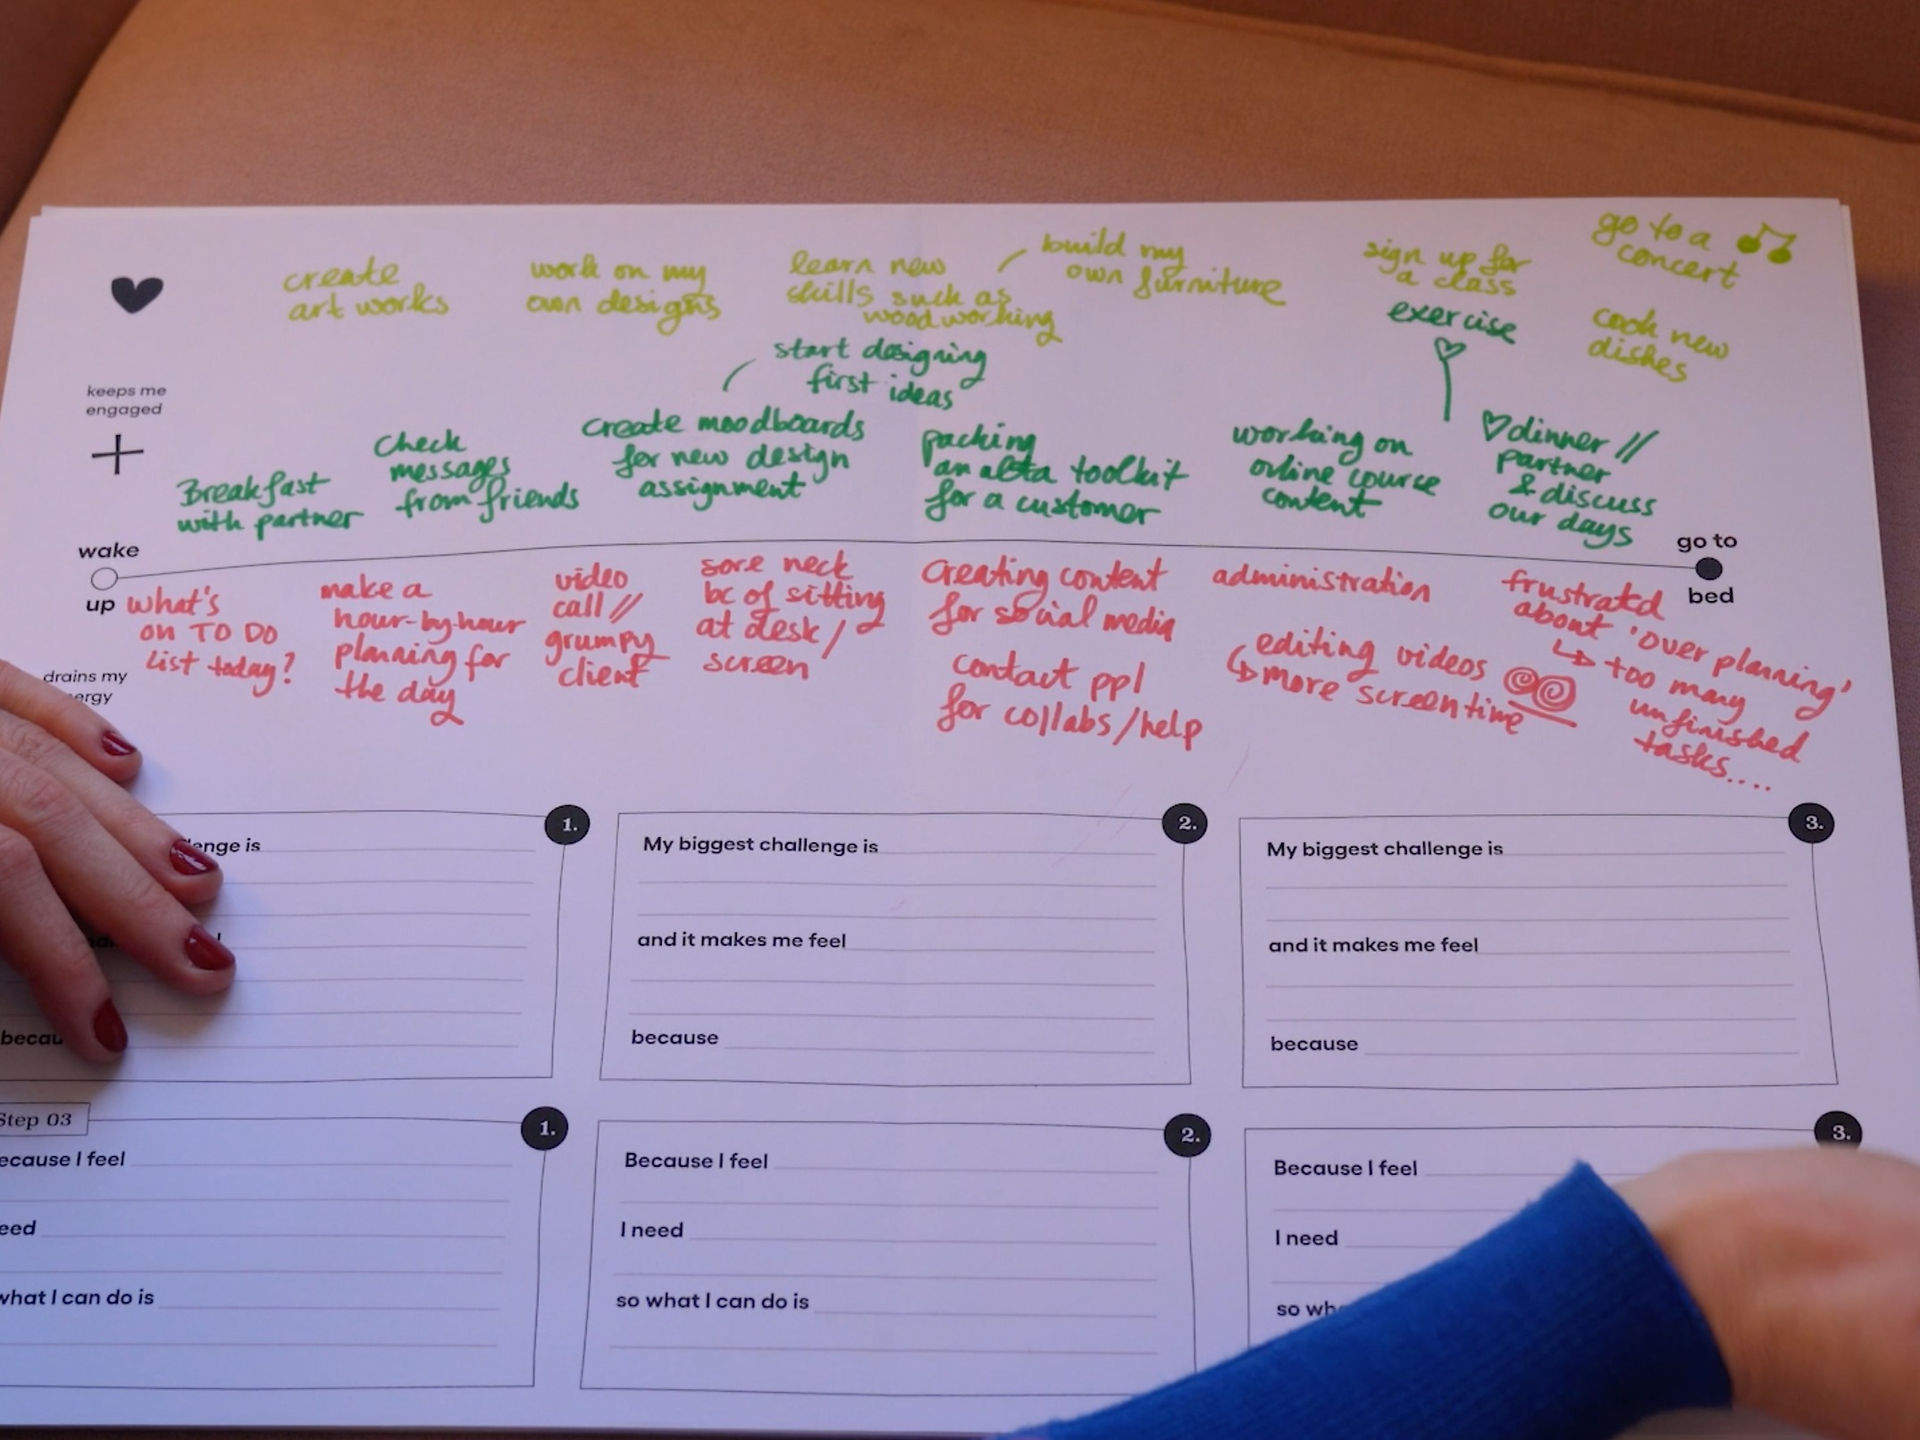 create
art works
work on my
own designs
learn new
skills such as
woodworking
build my
own furniture
sign up for
a class
go to a
concert
cook new
dishes
exercise
start designing
first ideas
keeps me
engaged
Breakfast
with partner
Check
messages
from friends
create moodboards
for new design
assignment
packing
an toolkit
for a customer
working on
online course
content
dinner //
partner
& discuss
our days
wake
up
go to
bed
what's
on TO DO
list today?
make a
hour-by-hour
planning for
the day
video
call //
grumpy
client
sore neck
bc of sitting
at desk /
screen
creating content
for social media
contact ppl
for collabs/help
administration
editing videos
more screentime
frustrated
about 'over planning'
too many
unfinished
tasks....
drains my
ergy
1.
enge is
becau
2.
My biggest challenge is
and it makes me feel
because
3.
My biggest challenge is
and it makes me feel
because
Step 03
1.
ecause I feel
eed
what I can do is
2.
Because I feel
I need
so what I can do is
3.
Because I feel
I need
so wh